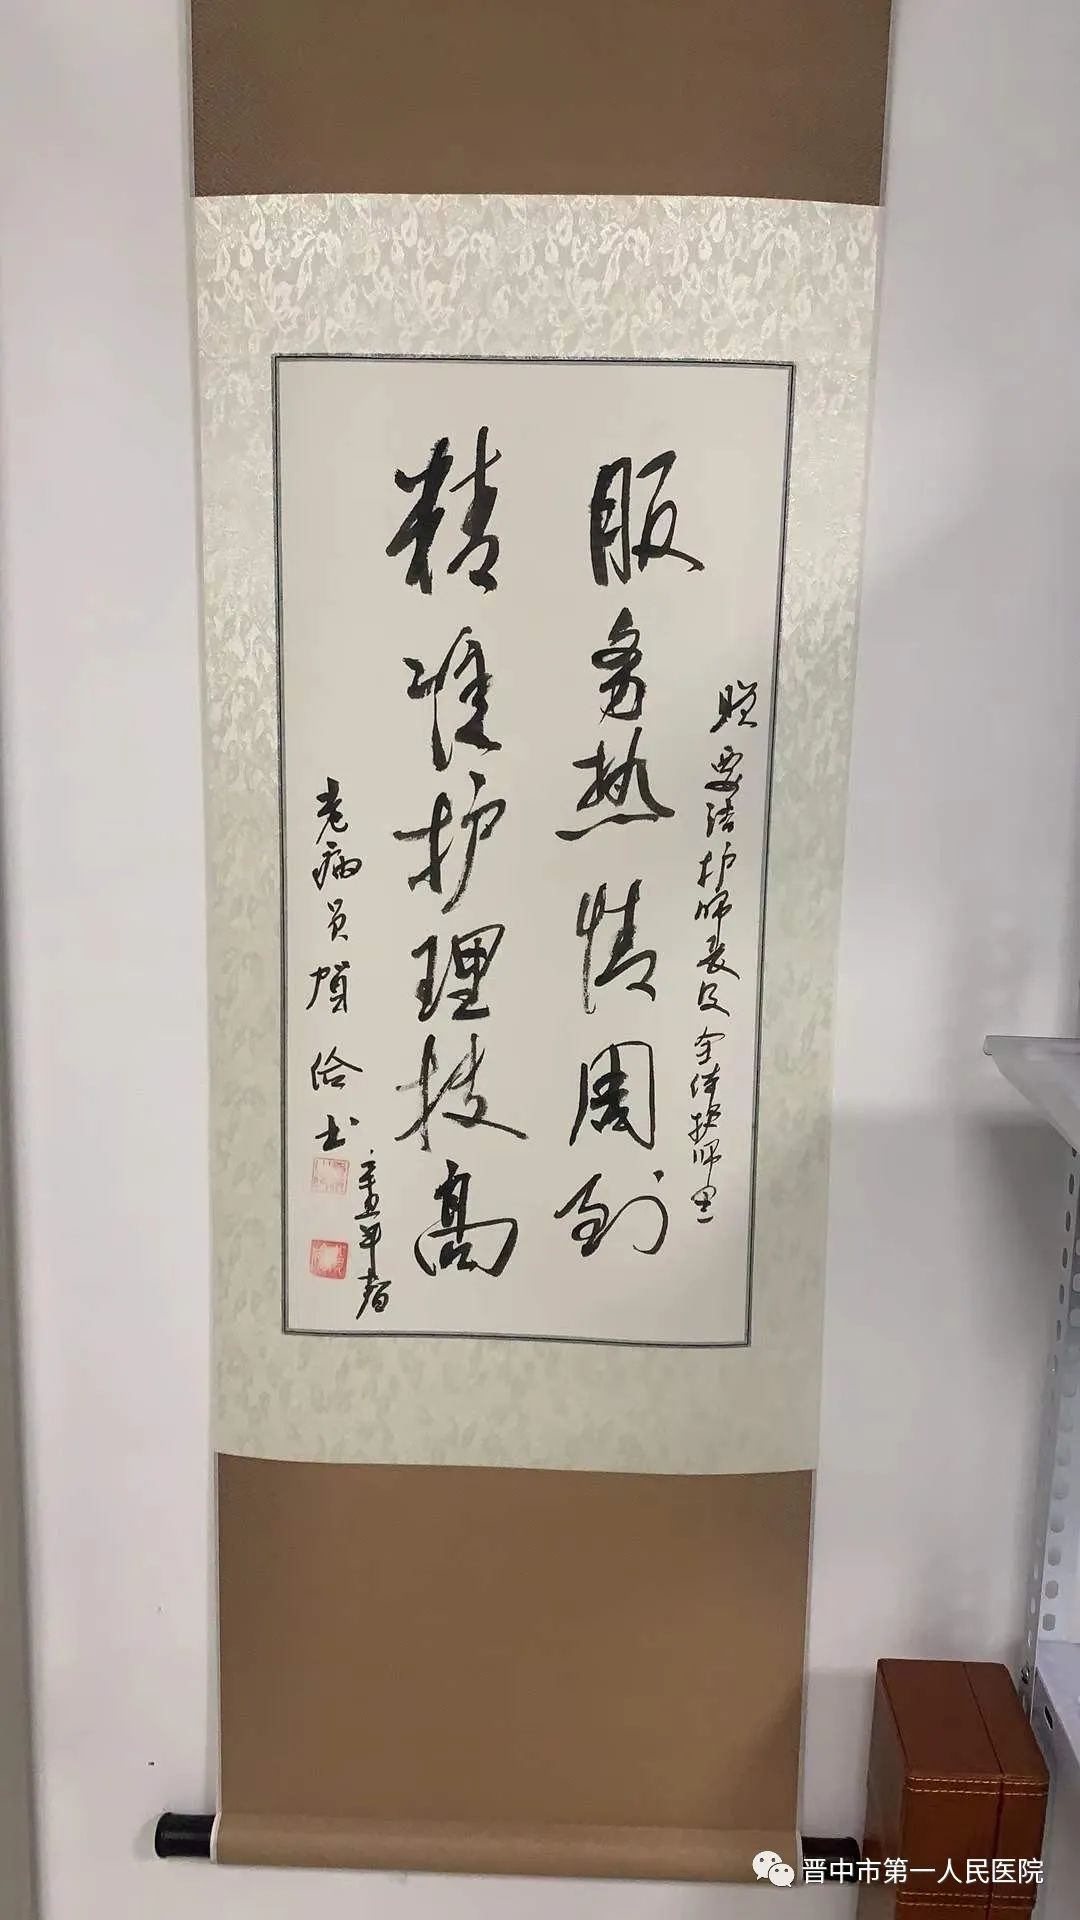 赠 要结护师长及全体护师
服务热情周到
精准护理技高
老病员贺 书
辛丑年春
晋中市第一人民医院